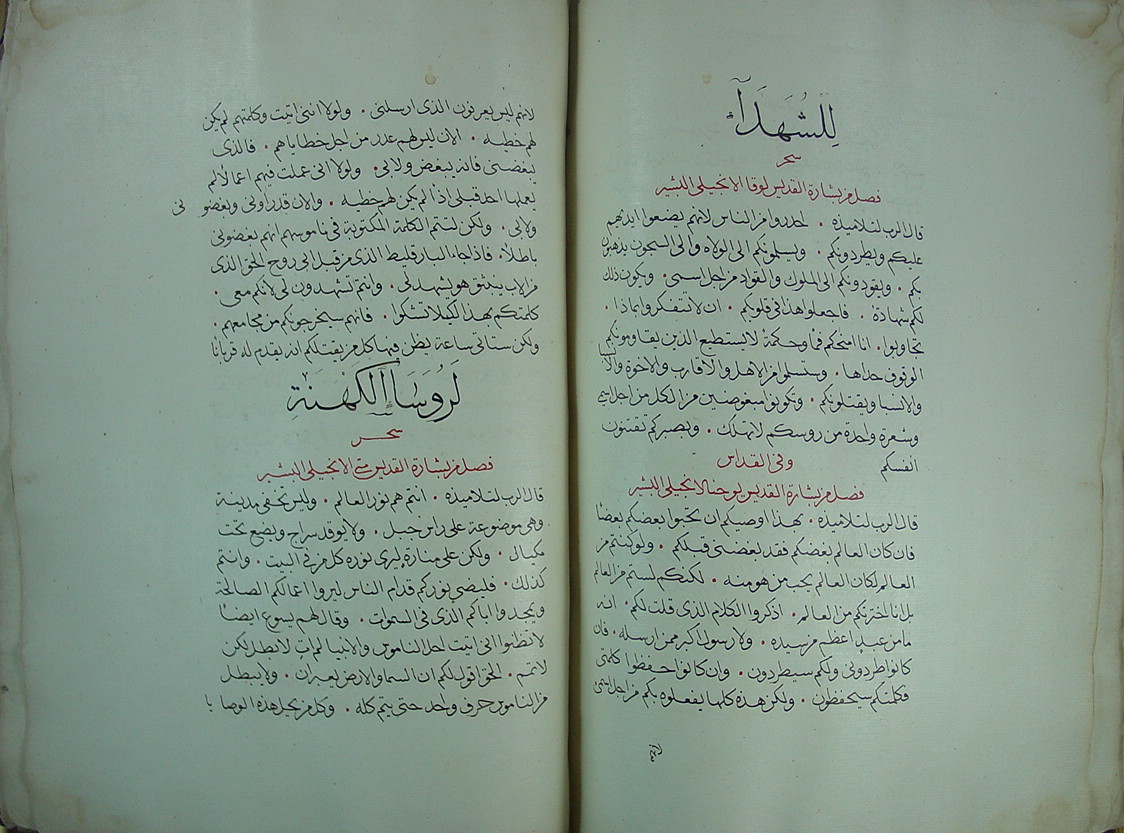 للشهدآء
سحر
فصل من بشارة القديس لوقا الانجيلي البشير
قال الرب لتلاميذه · احذروا من الناس لانهم يضعوا ايديهم
عليكم ويطردونكم · ويسلمونكم الى الولاه والى السجون يذهبون
بكم · ويقودونكم الى الملوك والقواد من اجل اسمى · ويكون ذلك
لكم شهادة · فاجعلوا هذا فى قلوبكم · ان لا تتفكروا بماذا
تجاوبوا · انا امنحكم فما وحكمة لا يستطيع الذين يقاومونكم
الوقوف حذاها · وستسلموا من الاهل والاقارب والاخوة
والانسبا ويقتلونكم · وتكونوا مبغوضين من الكل من اجل اسمى
وشعرة واحدة من روسكم لا تهلك · وبصبركم تقتنون
انفسكم
وفى القداس
فصل من بشارة القديس يوحنا الانجيلى البشير
قال الرب لتلاميذه · بهذا اوصيكم ان تحبوا بعضكم بعضا
فان كان العالم يبغضكم فقد بغضنى قبلكم · ولو كنتم من
العالم لكان العالم يحب من هو منه · لكنكم لستم من العالم
بل انا اخترتكم من العالم · اذكروا الكلام الذى قلت لكم · انه
ما من عبد اعظم من سيده · ولا رسول اكبر ممن ارسله · فان
كانوا طردونى ولكم سيطردون · وان كانوا حفظوا كلمتى
فكلمتكم سيحفظون · ولكن هذه كلها يفعلوه بكم من اجل اسمى
لانهم
لانهم ليس يعرفون الذى ارسلنى · ولولا اننى اتيت وكلمتهم لم يكن
لهم خطيه · الان ليس لهم عذر من اجل خطاياهم · فالذى
يبغضنى فانه يبغض ولابى · ولولا انى عملت فيهم اعمالا لم
يعلمها احد قبلى اذا لم يكن لهم خطيه · والان قد راونى وبغضونى
ولابى · ولكن لتتم الكلمة المكتوبة فى ناموسهم انهم بغضونى
باطلا · فاذا جاء البارقليط الذى من قبل ابى روح الحق الذى
من الاب ينبثق هو يشهد لى · وانتم تشهدون لى لانكم معى ·
كلمتكم بهذا لكيلا تشكوا · فانهم سيخرجونكم من مجامعهم ·
ولكن ستاتى ساعة يظن فيها كل من يقتلكم انه يقدم لله قربانا
لروسآ الكهنة
سحر
فصل من بشارة القديس متى الانجيلى البشير
قال الرب لتلاميذه · انتم هم نور العالم · وليس تخفى مدينة
وهى موضوعة على راس جبل · ولا يوقد سراج ويضع تحت
مكيال · ولكن على منارة ليرى نوره كل من فى البيت · وانتم
كذلك · فليضى نوركم قدام الناس ليروا اعمالكم الصالحة
ويمجدوا اباكم الذى فى السموات · وقال لهم يسوع ايضا
لا تظنوا انى اتيت احل الناموس والانبيا لم ات لابطل لكن
لاتمم · الحق اقول لكم ان السما والارض يعبران · ولا يبطل
من الناموس حرف وحد حتى يتم كله · وكل من يحل هذه الوصايا